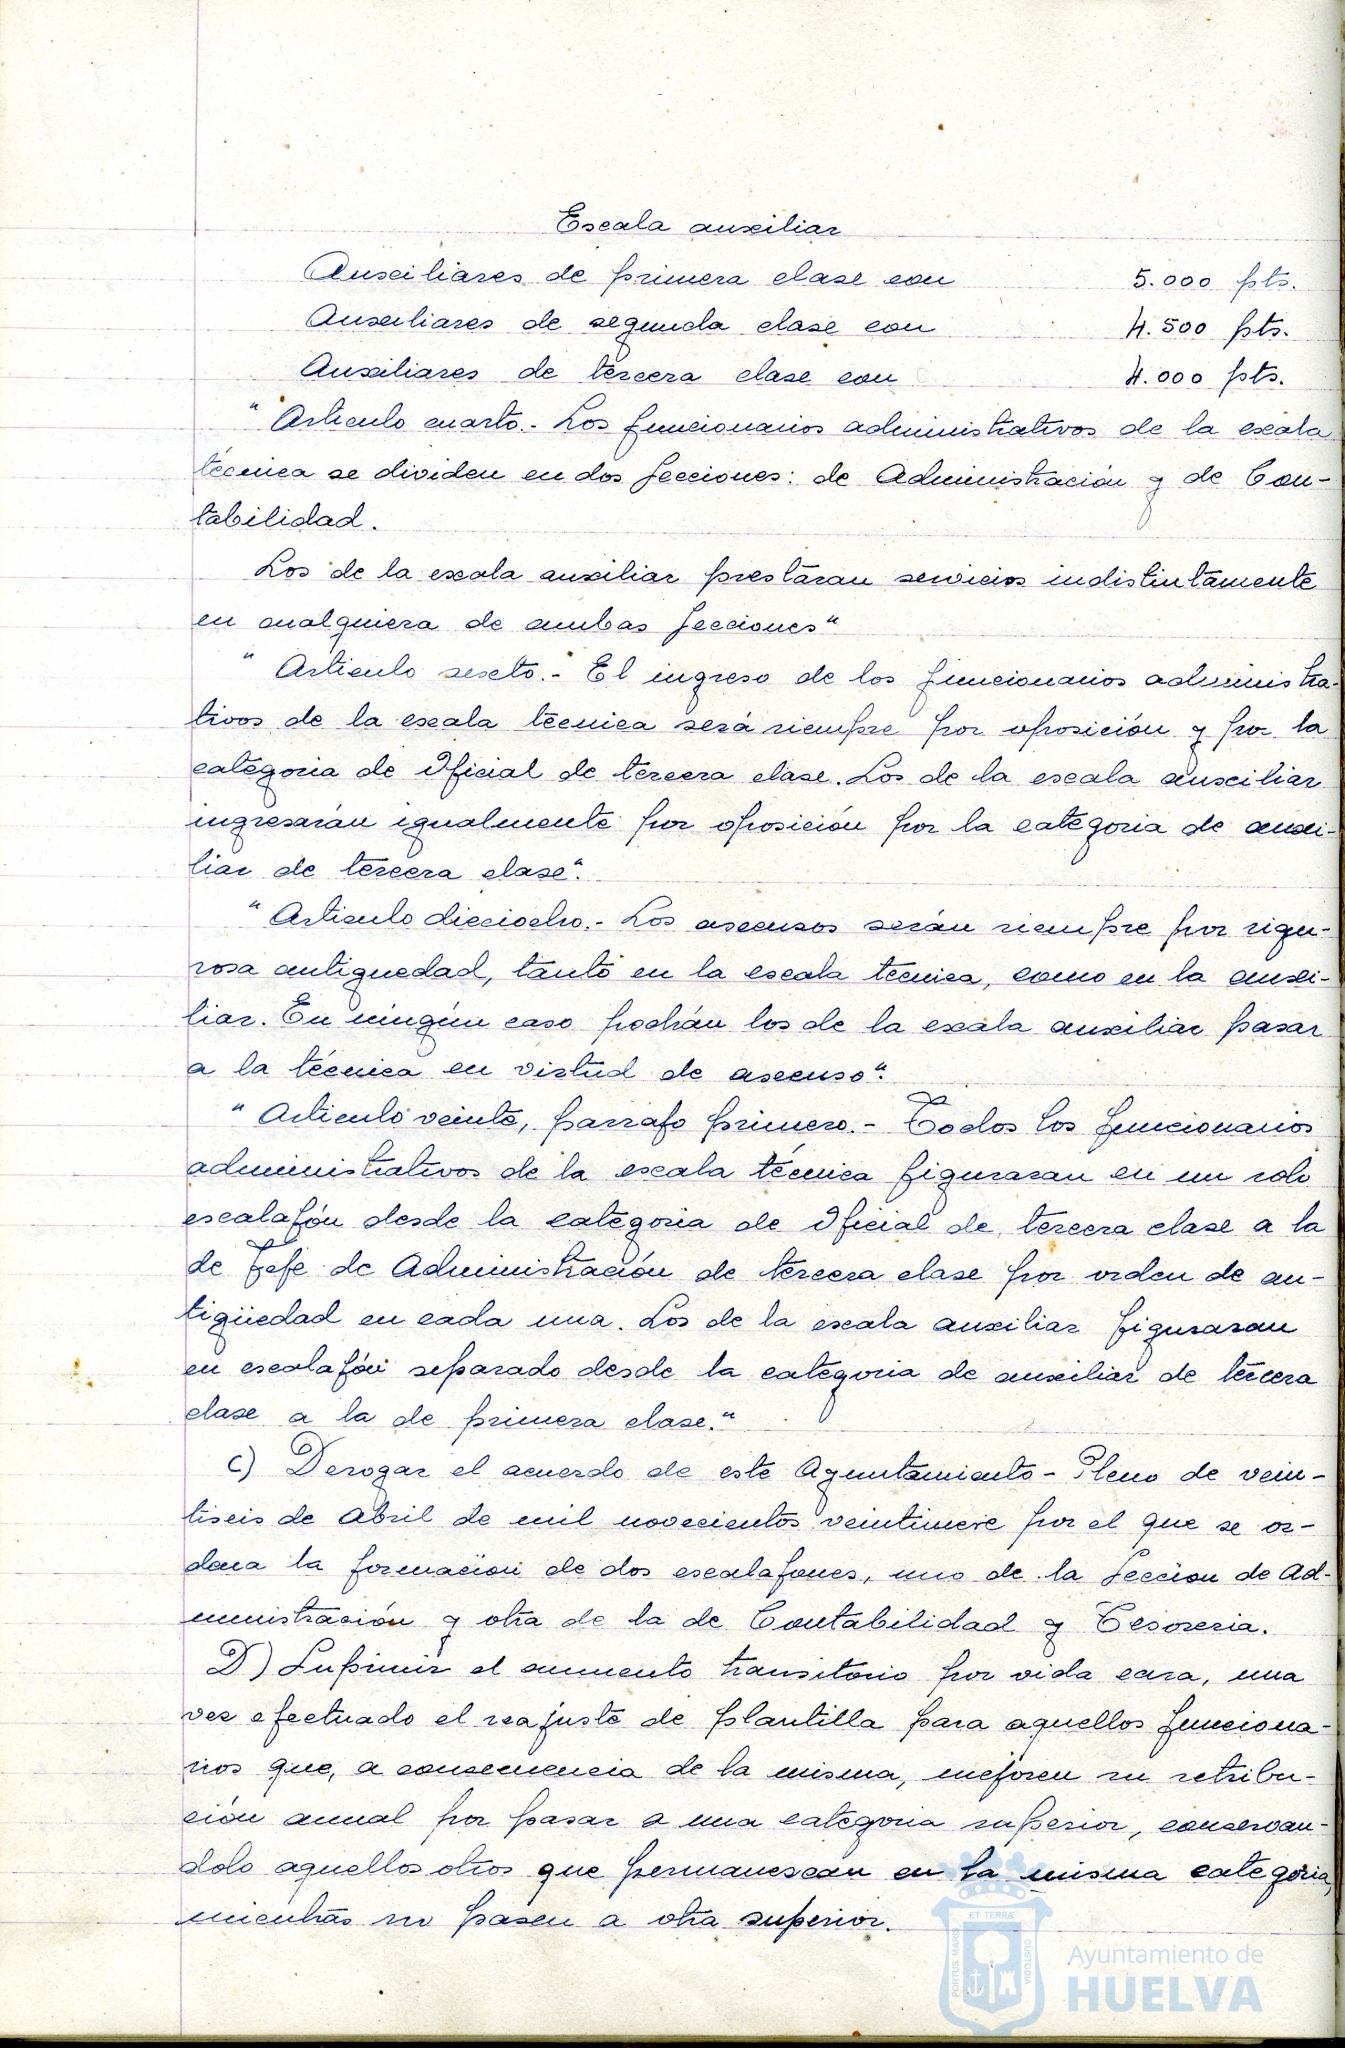 Escala auxiliar
Auxiliares de primera clase con 5.000 pts.
Auxiliares de segunda clase con 4.500 pts.
Auxiliares de tercera clase con 4.000 pts.
" Articulo cuarto.- Los funcionarios administrativos de la escala
técnica se dividen en dos Secciones: de Administración y de Con-
tabilidad.
Los de la escala auxiliar prestaran servicios indistintamente
en cualquiera de ambas Secciones"
" Articulo sexto.- El ingreso de los funcionarios administra-
tivos de la escala técnica será siempre por oposición y por la
categoria de Oficial de tercera clase. Los de la escala auxiliar
ingresarán igualmente por oposición por la categoria de auxi-
liar de tercera clase".
" Articulo dieciocho.- Los ascensos serán siempre por rigu-
rosa antiguedad, tanto en la escala técnica, como en la auxi-
liar. En ningún caso podrán los de la escala auxiliar pasar
a la técnica en virtud de ascenso".
" Articulo veinte, parrafo primero.- Todos los funcionarios
administrativos de la escala técnica figuraran en un solo
escalafón desde la categoria de Oficial de tercera clase a la
de Jefe de Administración de tercera clase por orden de an-
tigüedad en cada una. Los de la escala auxiliar figuraran
en escalafón separado desde la categoria de auxiliar de tercera
clase a la de primera clase."
C) Derogar el acuerdo de este Ayuntamiento - Pleno de vein-
tiseis de Abril de mil novecientos veintinueve por el que se or-
dena la formación de dos escalafones, uno de la Sección de Ad-
ministración y otra de la de Contabilidad y Tesoreria.
D) Suprimir el aumento transitorio por vida cara, una
vez efectuado el reajuste de plantilla para aquellos funciona-
rios que, a consecuencia de la misma, mejoren su retribu-
ción anual por pasar a una categoria superior, conservan-
dolo aquellos otros que permanezcan en la misma categoria,
mientras no pasen a otra superior.
PORTUS MARIS
ET TERRÆ
CUSTODIA
Ayuntamiento de
HUELVA